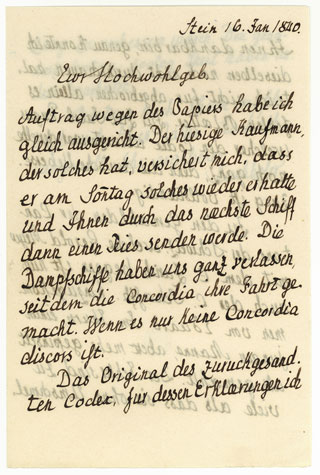 Stein 16. Jan 1840.
Ewr Hochwohlgeb.
Auftrag wegen des Papiers habe ich
gleich ausgericht. Der hiesige Kaufmann,
der solches hat, versichert mich, dass
er am Soñtag solches wieder erhalte
und Ihnen durch das næchste Schiff
dann einen Ries senden werde. Die
Dampfschiffe haben uns ganz verlassen,
seit dem die Concordia ihre Fahrt ge-
macht. Wenn es nur keine Concordia
discors ist.
Das Original des zuruckgesand-
ten Codex, fur dessen Erklærungen ich